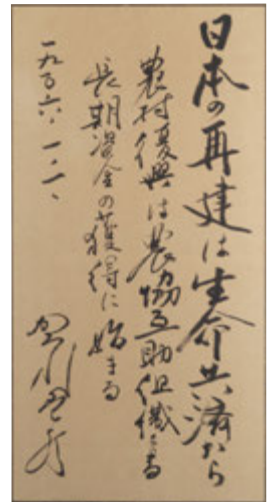 日本の再建は生命共済から
農村復興は農協互助組織による
長期資金の獲得に始まる
一九五六.一.一、
賀川豊彦